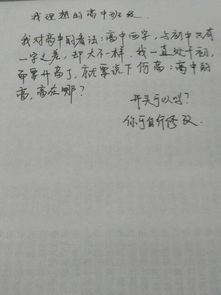 我理想的高中班级
我对高中的看法:高中两字,与初中只有
一字之差,却大不一样。我一直处于初,
而要升高了,就要说下何高:高中的
高,高在哪?
开头可以吗?
你可自行修改。